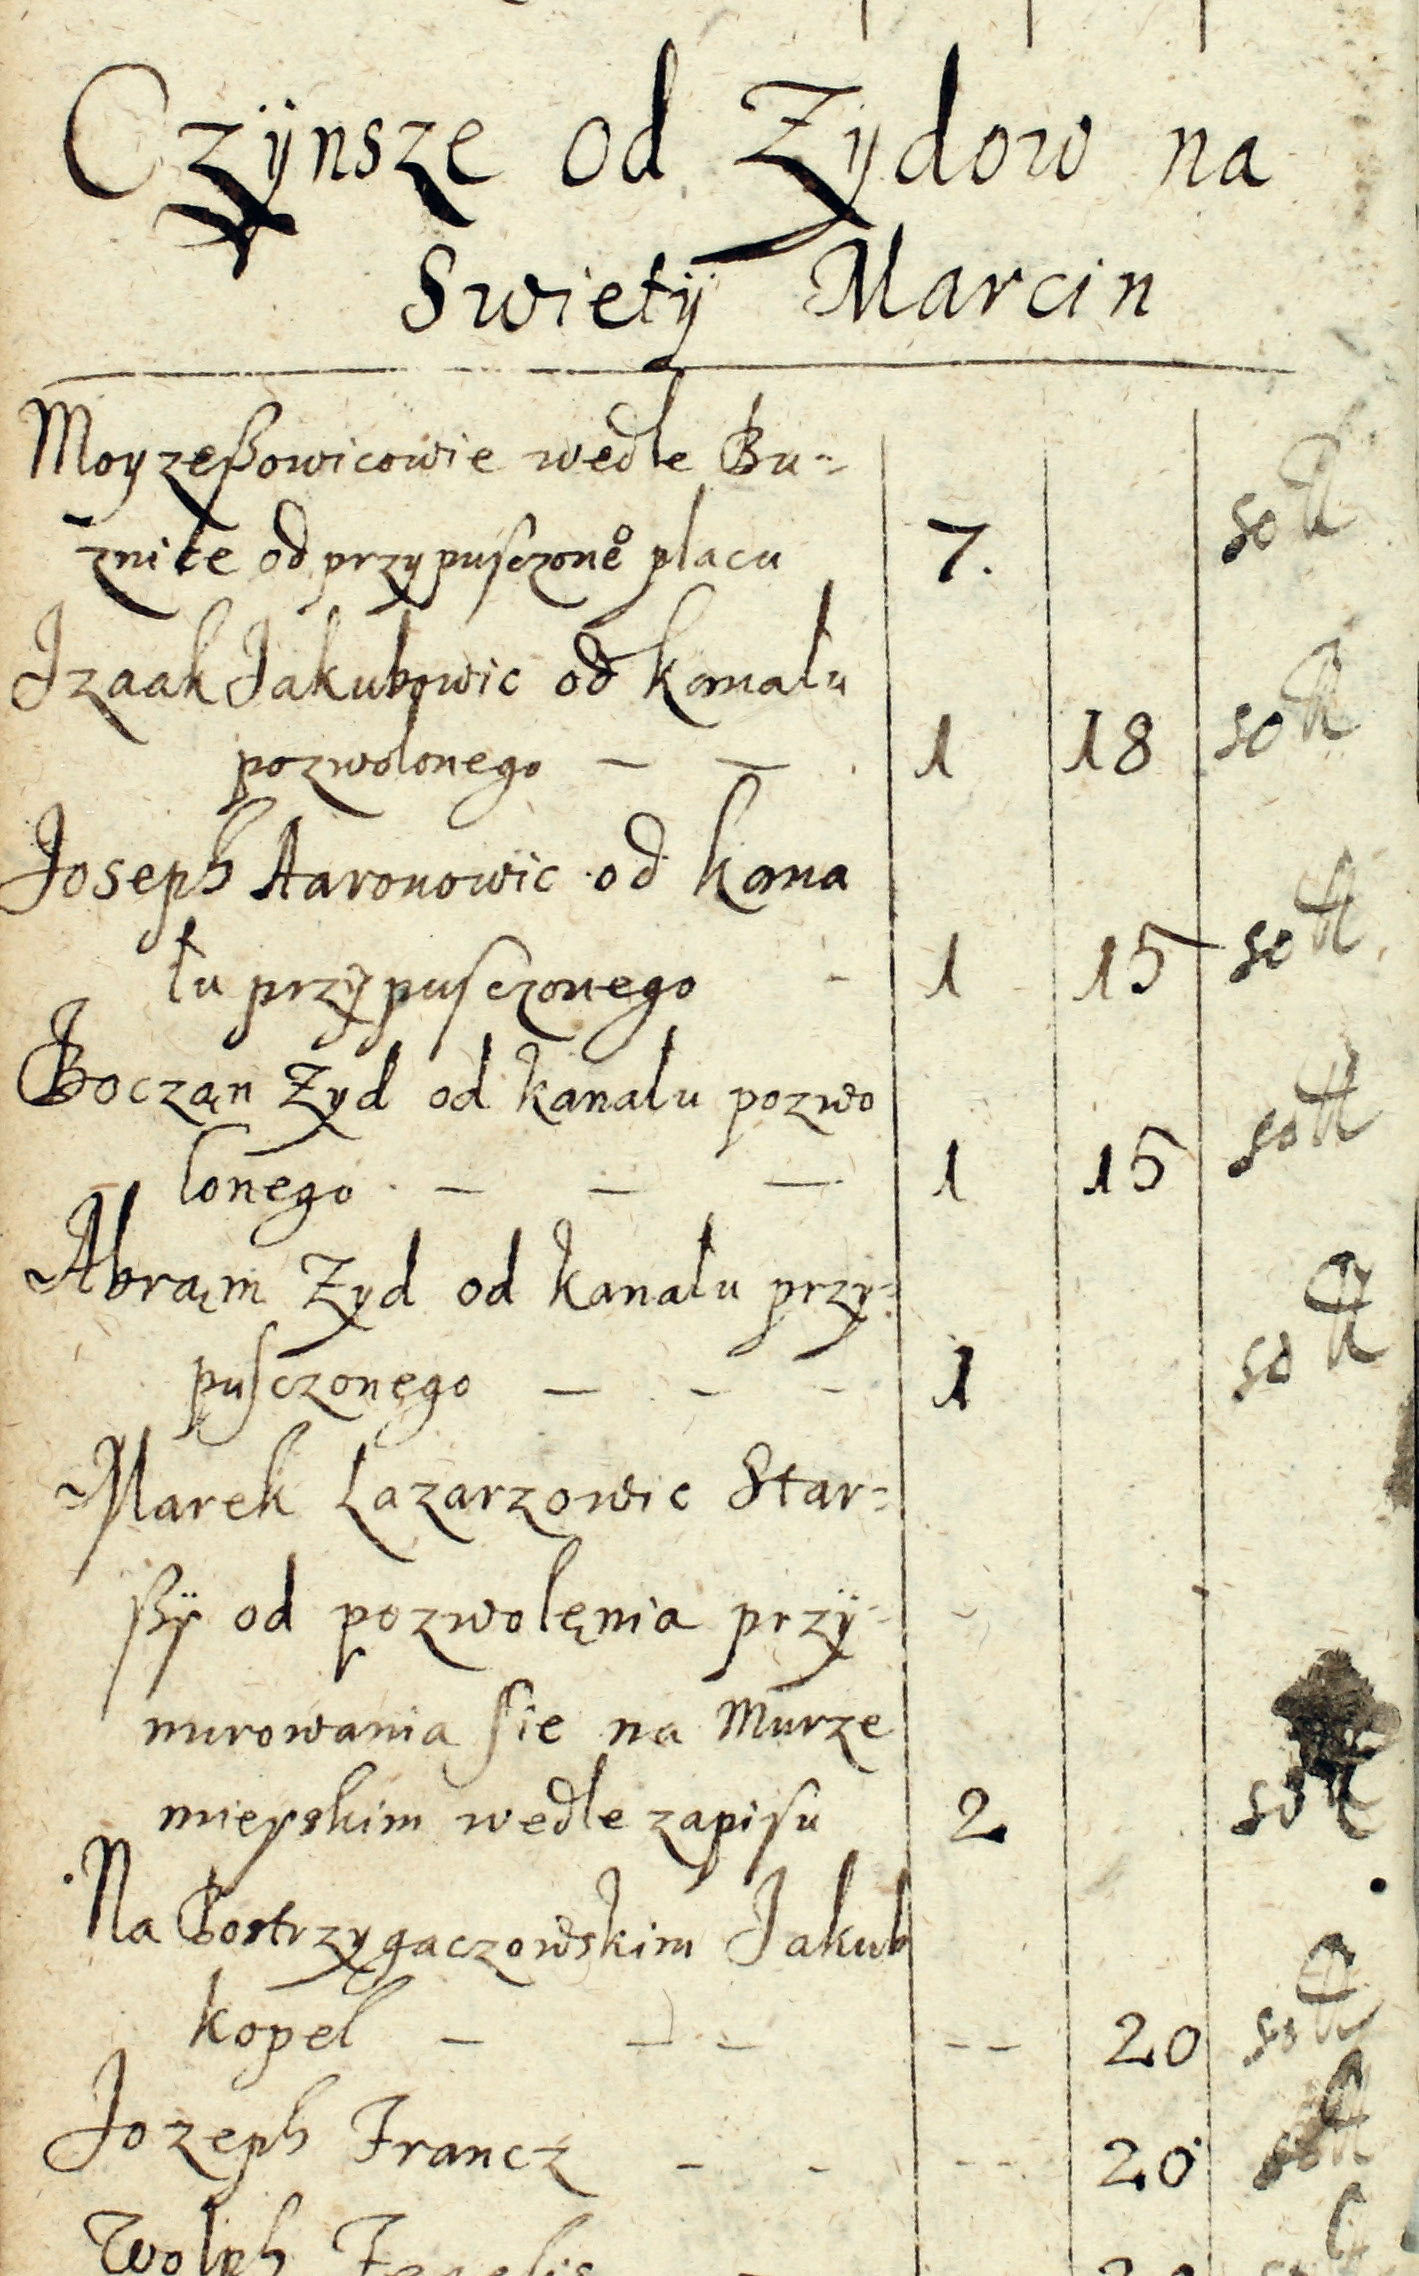 Czÿnsze od Zydow na
Swietÿ Marcin
Moyzeßowicowie wedle Bu-
znice od przypusczone° placu 7. sott
Izaak Jakubowic od kanału
pozwolonego — — 1 18 sott
Joseph Aaronowic od kana
łu przypusczonego - 1 15 sott
Boczan Zyd od kanału pozwo
lonego — — — 1 15 sott
Abraąm Zyd od kanału przy-
pusczonego — - - 1 sott
Marek Lazarzowic Star-
ßÿ od pozwolęnia przÿ-
murowania sie na Murze
mieyskim wedle zapisu 2 sott
Na Postrzygaczowskim Jakub
kopel — — - -- 20 sott
Jozeph Francz - - -- 20 sott
Wolph